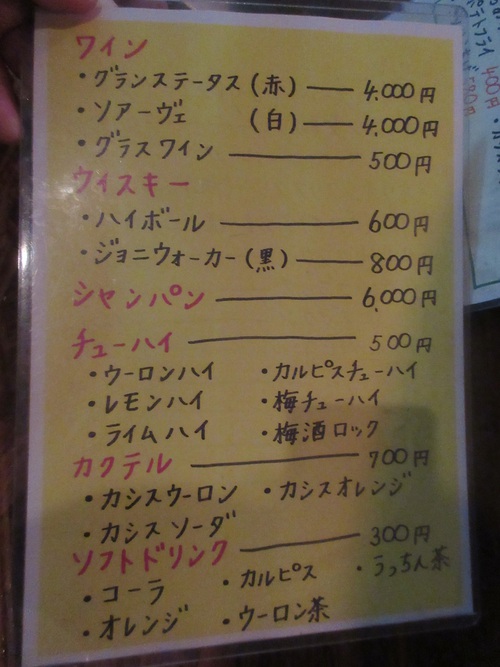 ワイン
・グランステータス(赤) — 4.000円
・ソアーヴェ (白) — 4.000円
・グラスワイン — 500円
ウィスキー
・ハイボール — 600円
・ジョニウォーカー(黒) — 800円
シャンパン — 6.000円
チューハイ — 500円
・ウーロンハイ ・カルピスチューハイ
・レモンハイ ・梅チューハイ
・ライムハイ ・梅酒ロック
カクテル — 700円
・カシスウーロン ・カシスオレンジ
・カシスソーダ
ソフトドリンク — 300円
・コーラ ・カルピス ・うっちん茶
・オレンジ ・ウーロン茶
ポテトフライ 400円